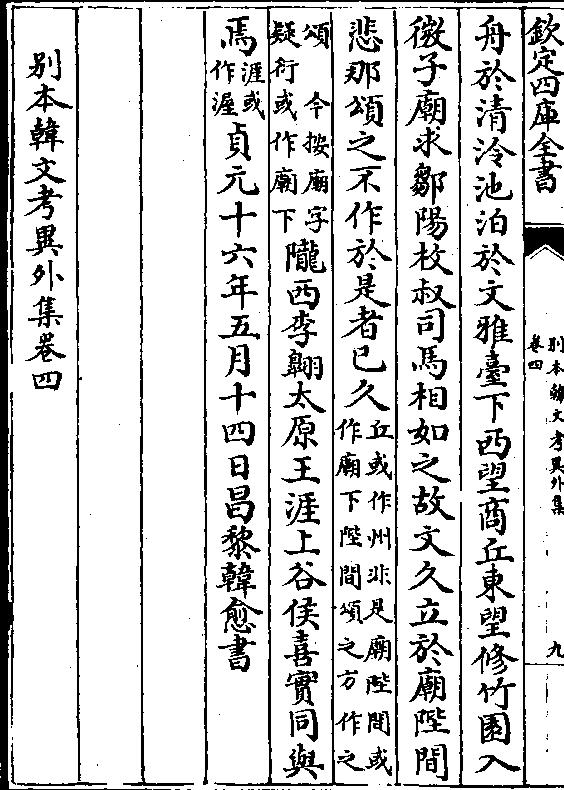 欽定四庫全書
別本韓文考異外集
卷四
九
舟於清泠池泊於文雅臺下西望商丘東望修竹園入
微子廟求鄒陽枚叔司馬相如之故文久立於廟陛間
悲那頌之不作於是者已久丘或作州非是廟陛間或作廟下陛間頌之方作之
頌 今按廟字疑衍或作廟下隴西李翺太原王涯上谷侯喜實同與
焉涯或作渥貞元十六年五月十四日昌黎韓愈書
別本韓文考異外集卷四